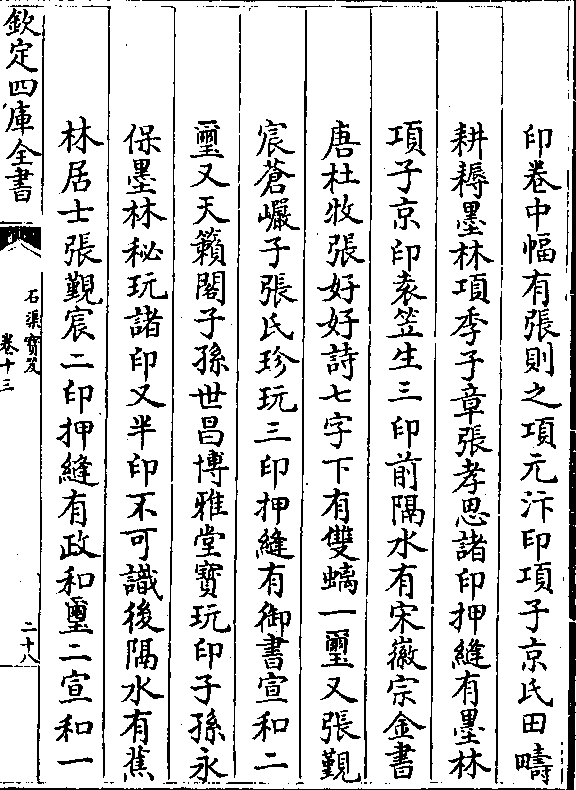 印卷中幅有張則之項元汴印項子京氏田疇
耕耨墨林項季子章張孝思諸印押縫有墨林
項子京印袁笠生三印前隔水有宋徽宗金書
唐杜牧張好好詩七字下有雙螭一璽又張覲
宸蒼巘子張氏珍玩三印押縫有御書宣和二
璽又天籟閣子孫世昌博雅堂寳玩印子孫永
保墨林秘玩諸印又半印不可識後隔水有蕉
林居士張覲宸二印押縫有政和璽二宣和一
欽定四庫全書
石渠寳笈
卷十三
二十八